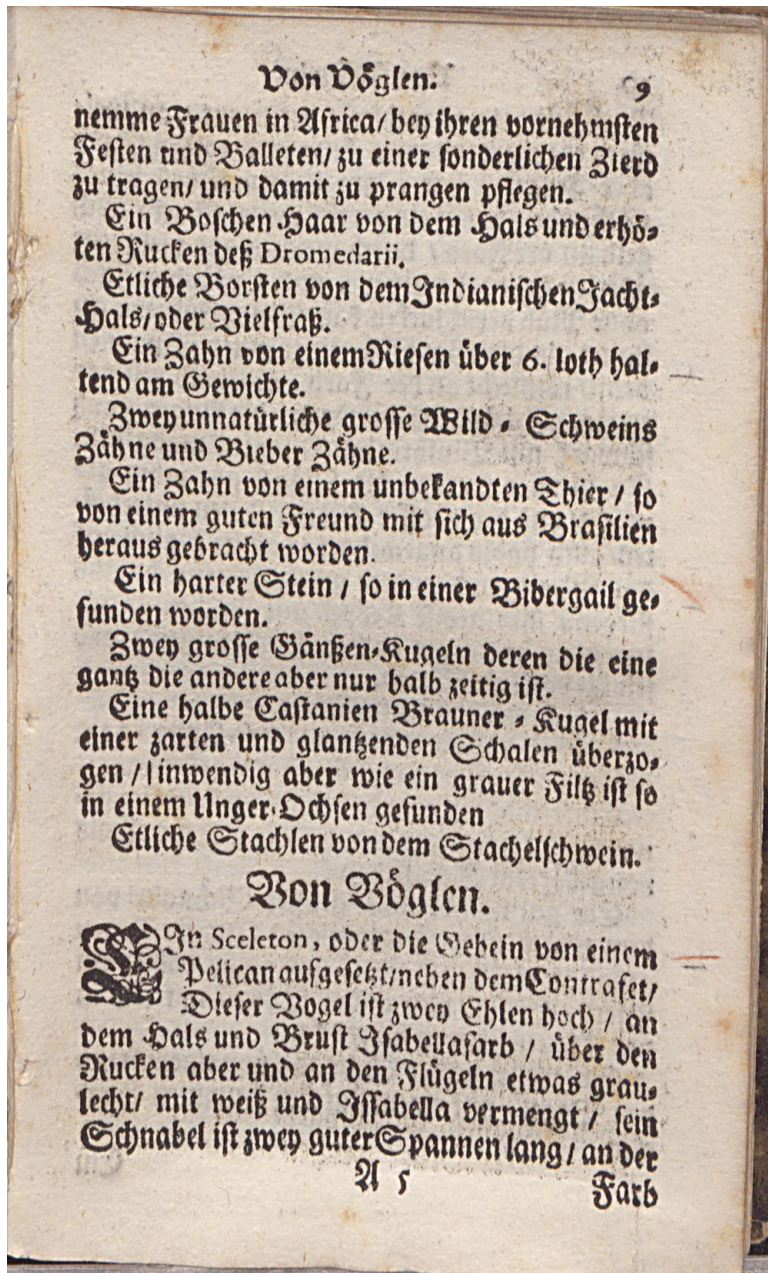 Von Vöglen. 9
nemme Frauen in Africa/ bey ihren vornehmsten
Festen und Balleten/ zu einer sonderlichen Zierd
zu tragen/ und damit zu prangen pflegen.
Ein Boschen Haar von dem Hals und erhö-
ten Rucken deß Dromedarii.
Etliche Borsten von dem Indianischen Jacht-
Hals/ oder Vielfraß.
Ein Zahn von einem Riesen über 6. loth hal-
tend am Gewichte.
Zwey unnatürliche grosse Wild - Schweins
Zähne und Bieber Zähne.
Ein Zahn von einem unbekandten Thier / so
von einem guten Freund mit sich aus Brasilien
heraus gebracht worden.
Ein harter Stein / so in einer Bibergail ge-
funden worden.
Zwey grosse Gänßen-Kugeln deren die eine
gantz die andere aber nur halb zeitig ist.
Eine halbe Castanien Brauner - Kugel mit
einer zarten und glantzenden Schalen überzo-
gen / inwendig aber wie ein grauer Filtz ist so
in einem Unger-Ochsen gefunden
Etliche Stachlen von dem Stachelschwein.
Von Vöglen.
EIn Sceleton, oder die Gebein von einem
Pelican aufgesetzt/ neben dem Contrafet/
Dieser Vogel ist zwey Ehlen hoch / an
dem Hals und Brust Isabellafarb / über den
Rucken aber und an den Flügeln etwas grau-
lecht/ mit weiß und Issabella vermengt / sein
Schnabel ist zwey guter Spannen lang / an der
A 5 Farb